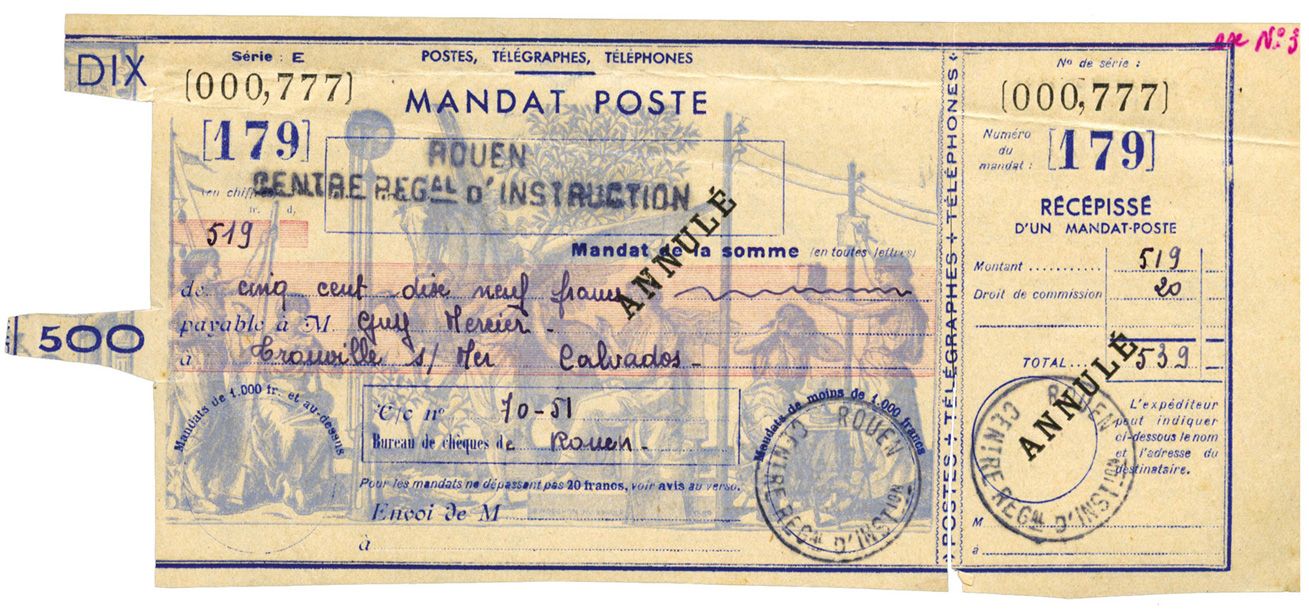 DIX
500
Série : E
(000,777)
[179]
POSTES, TÉLÉGRAPHES, TÉLÉPHONES
MANDAT POSTE
ROUEN
CENTRE REGAL D'INSTRUCTION
(en chiffres)
fr. d,
519
Mandat de la somme (en toutes lettres)
de cinq cent dix neuf francs
payable à M Guy Mercier -
à Trouville s/ Mer Calvados -
ANNULÉ
Mandats de 1.000 fr. et au-dessus
C/c nº 70-51
Bureau de chèques de Rouen -
Pour les mandats ne dépassant pas 20 francs, voir avis au verso.
Envoi de M
à
Mandats de moins de 1.000 francs
ROUEN
CENTRE REGAL D'INSTION
POSTES + TÉLÉGRAPHES + TÉLÉPHONES
Nº 3
Nº de série :
(000,777)
Numéro du mandat : [179]
RÉCÉPISSÉ
D'UN MANDAT-POSTE
Montant 519
Droit de commission 20
TOTAL 539
ANNULÉ
L'expéditeur
peut indiquer
ci-dessous le nom
et l'adresse du
destinataire.
ROUEN
CENTRE REGAL D'INSTION
M
à